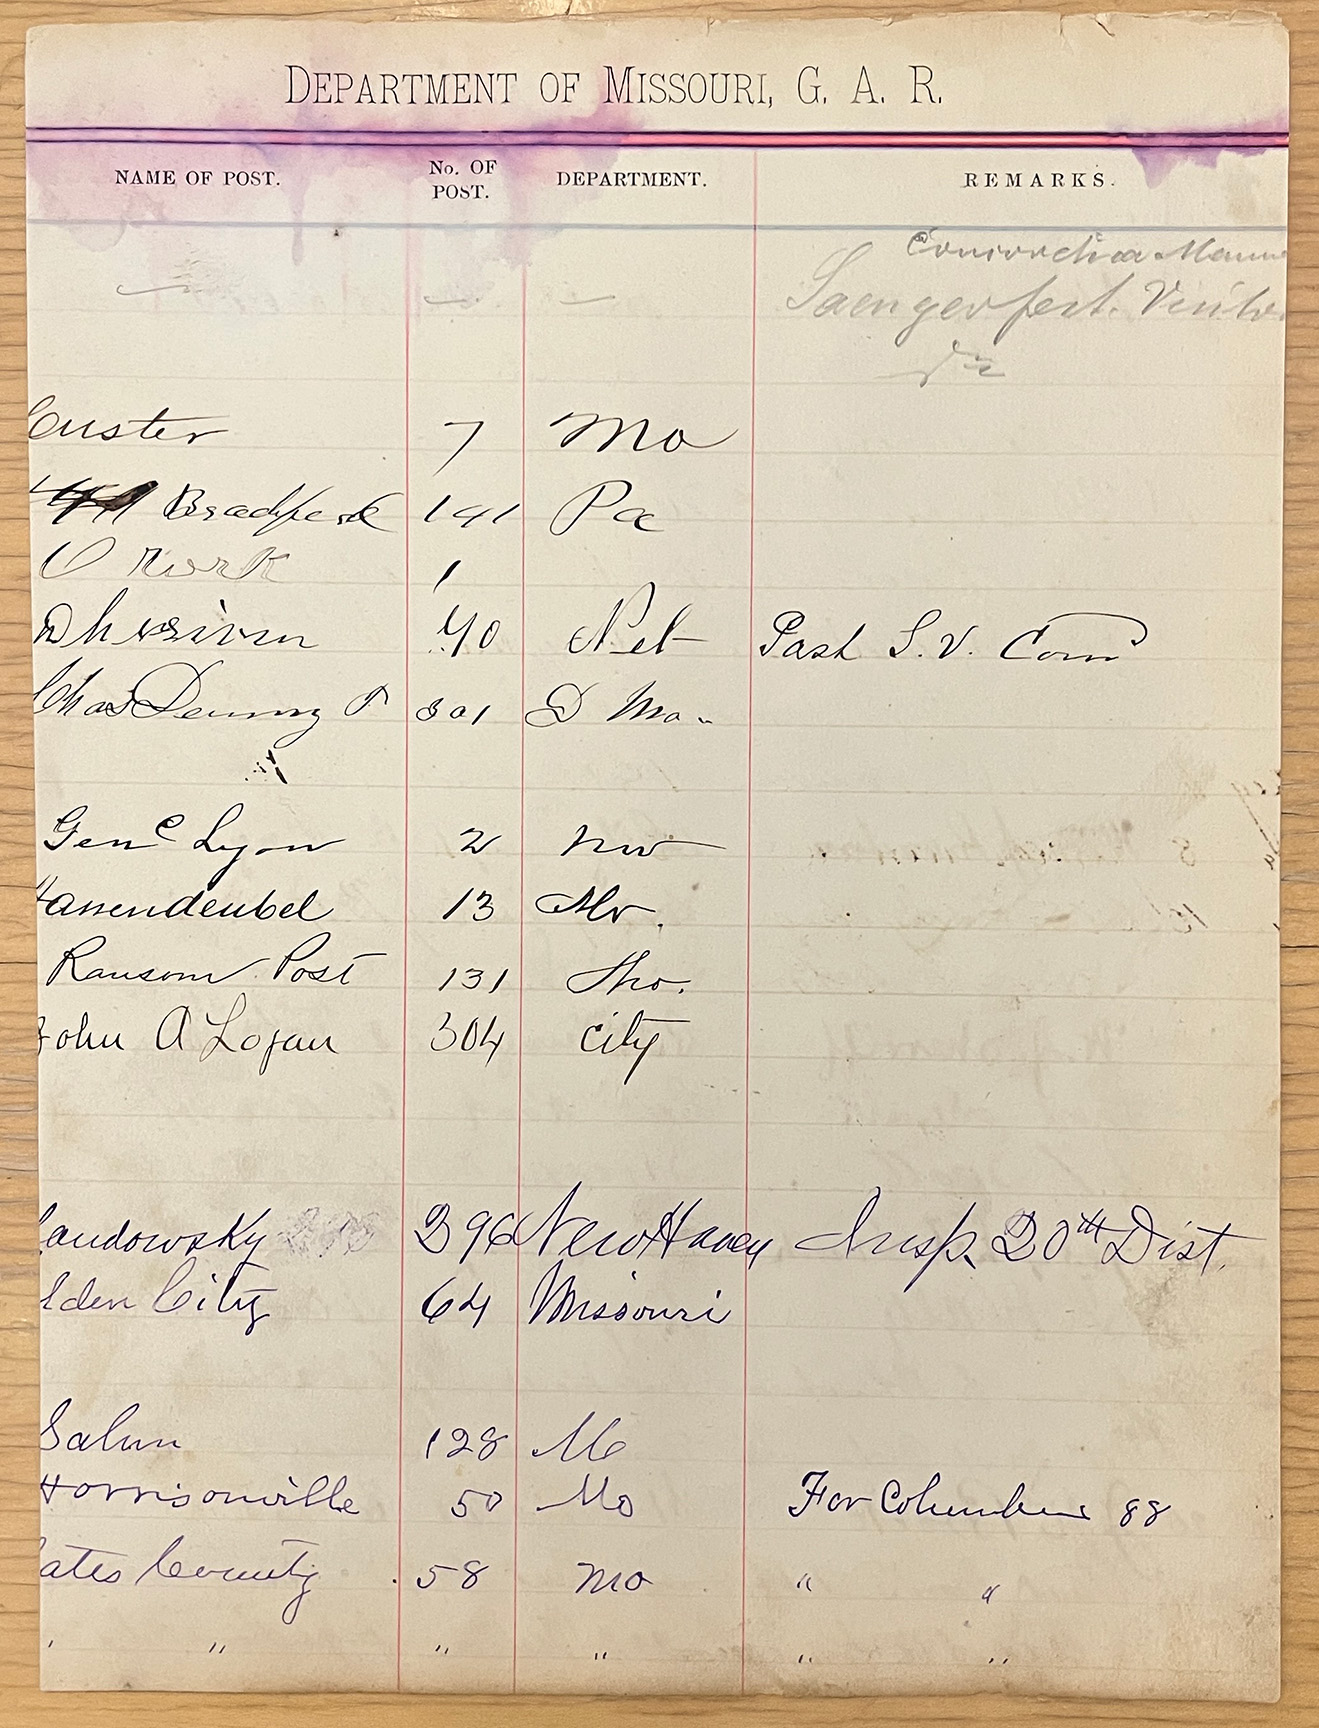 DEPARTMENT OF MISSOURI, G. A. R.
NAME OF POST. No. OF POST. DEPARTMENT. REMARKS.
Concordia
Saengerfest.
Custer 7 Mo
141 Pa
O Rork 1
40 Neb Past S. V. Com
Chas Denny P 301 D Mo..
Genl Lyon 2 Mo
Hassendeubel 13 Mo.
Ransom Post 131 Mo.
John A Logan 304 City
andowsky 296 New Haven Insp. 20th Dist.
lden City 64 Missouri
128 Mo
Harrisonville 50 Mo For Columbus 88
ates County . 58 Mo " "
" " " " " "